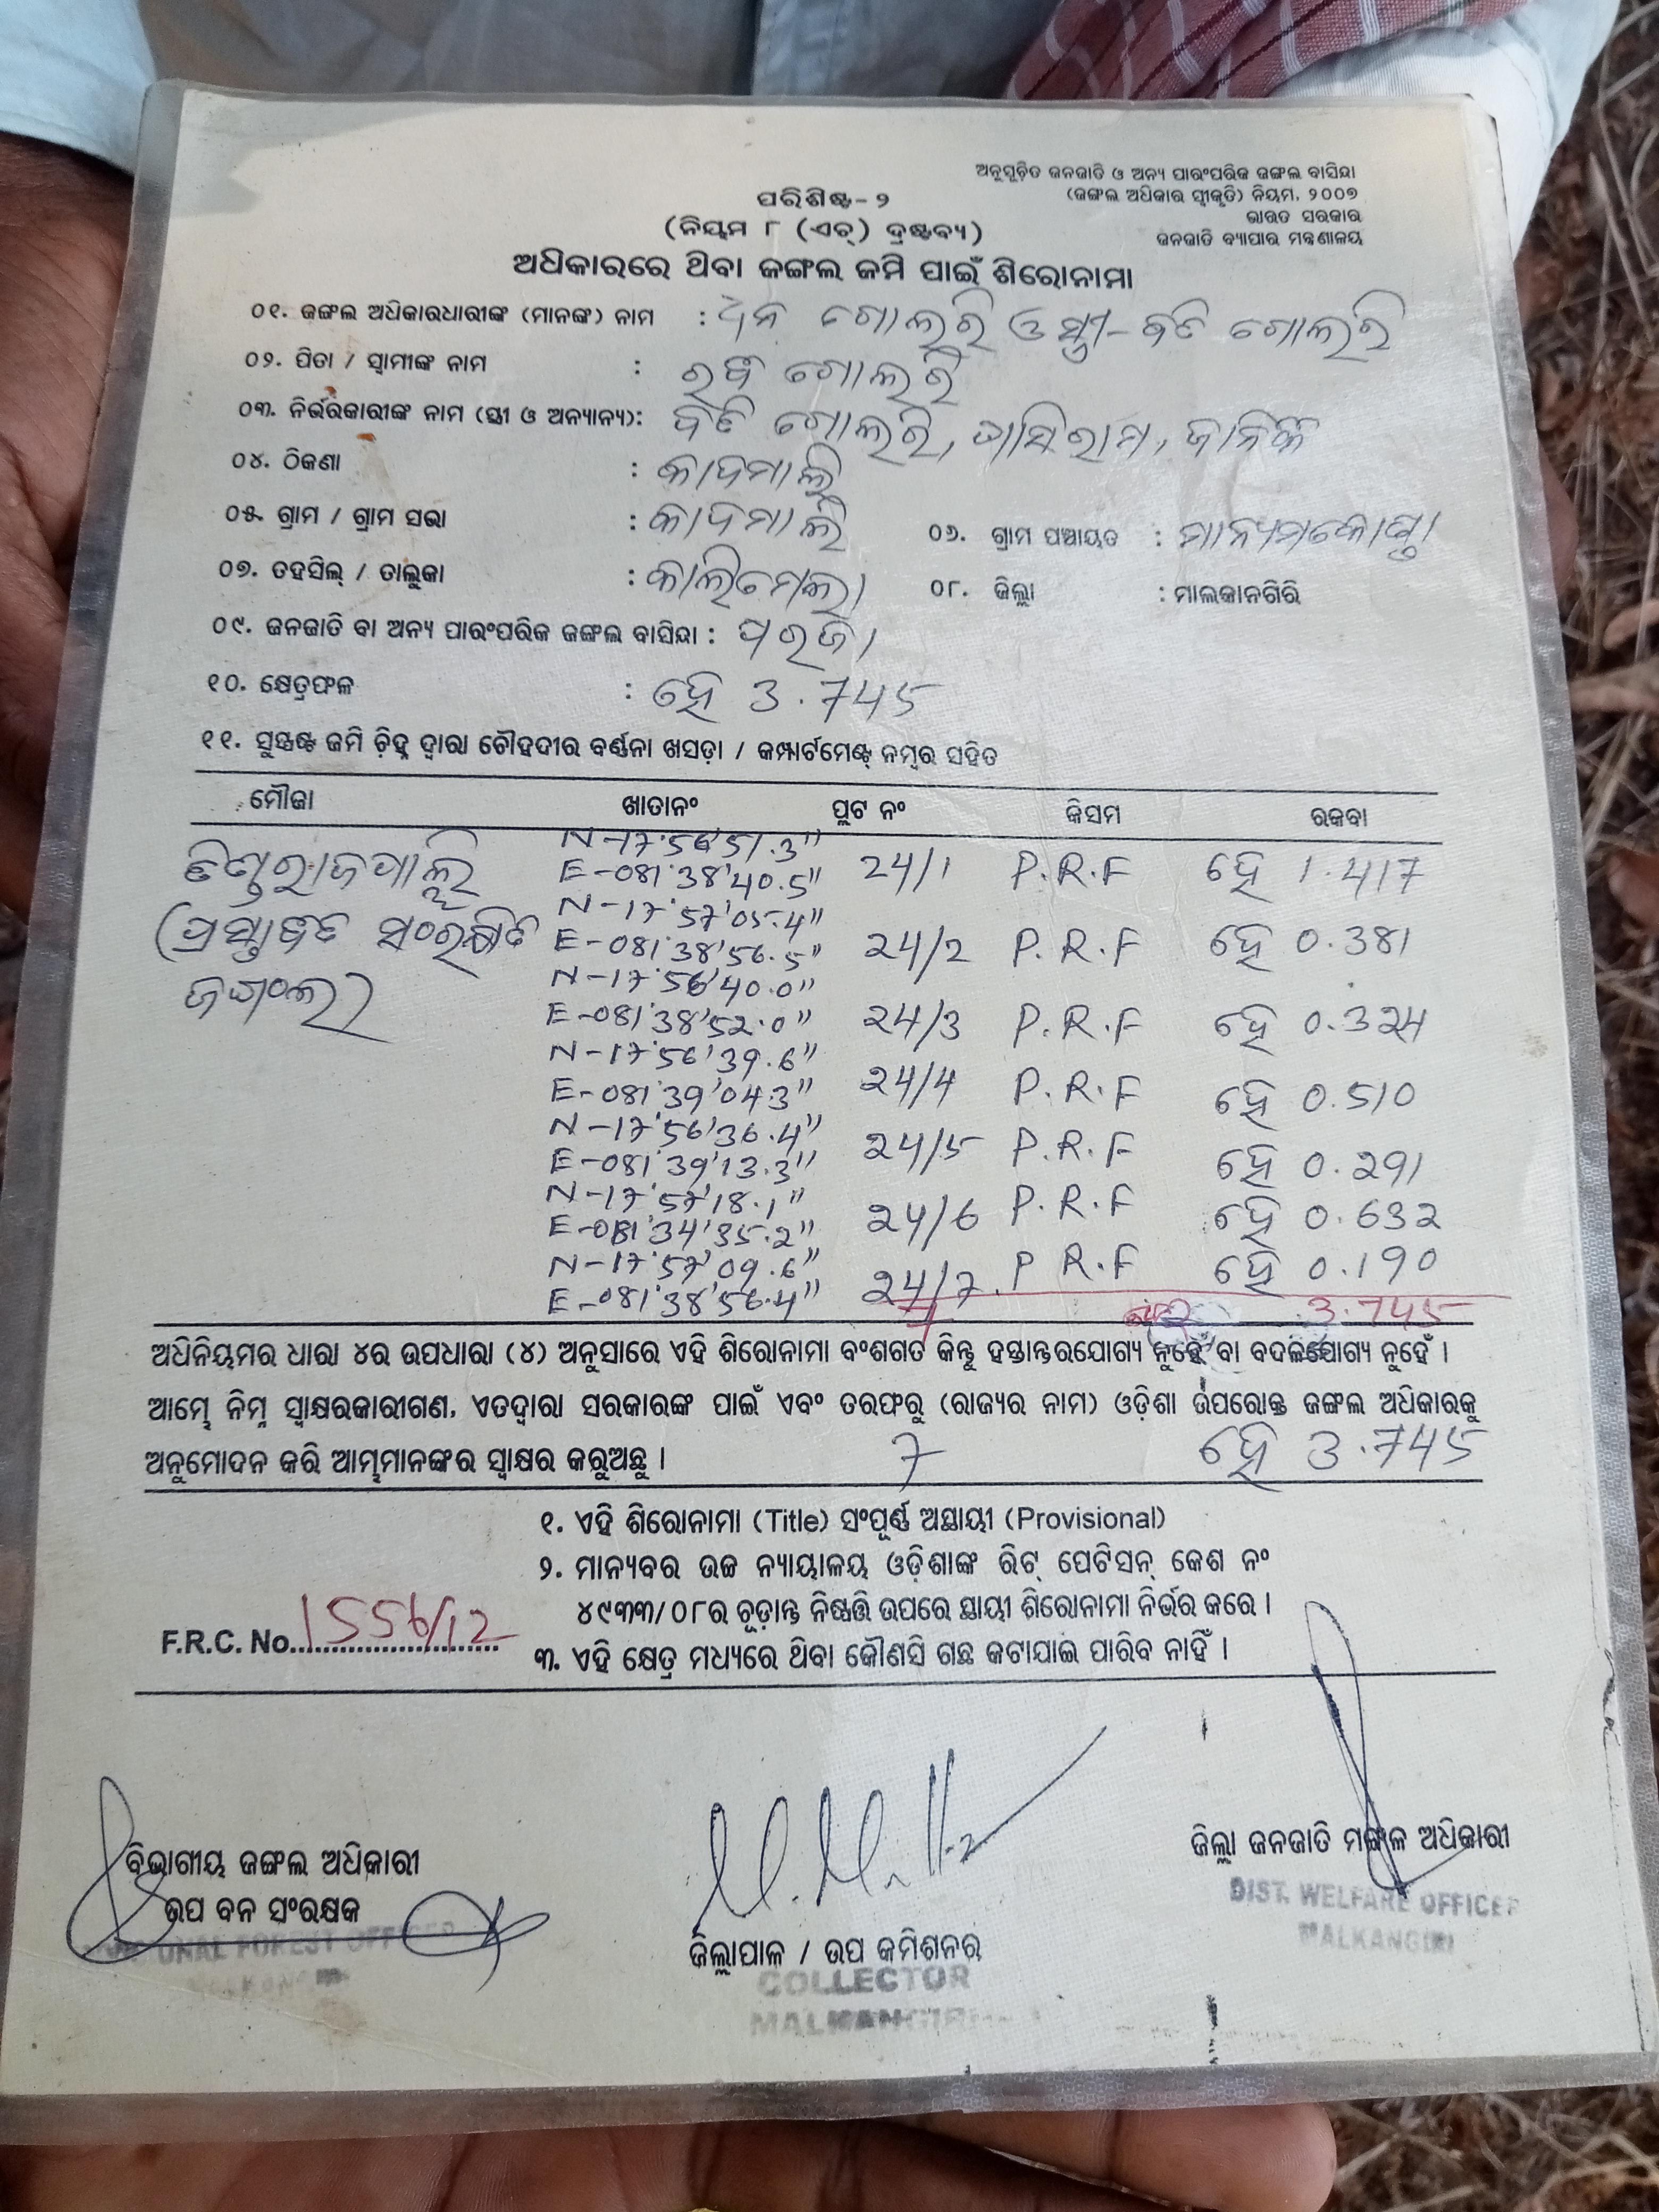 ଅନୁସୂଚିତ ଜନଜାତି ଓ ଅନ୍ୟ ପାରଂପରିକ ଜଙ୍ଗଲ ବାସିନ୍ଦା
(ଜଙ୍ଗଲ ଅଧିକାର ସ୍ୱୀକୃତି) ନିୟମ, ୨୦୦୭
ଭାରତ ସରକାର
ଜନଜାତି ବ୍ୟାପାର ମନ୍ତ୍ରଣାଳୟ
ପରିଶିଷ୍ଟ-୨
(ନିୟମ ୮ (ଏଚ୍) ଦ୍ରଷ୍ଟବ୍ୟ)
ଅଧିକାରରେ ଥିବା ଜଙ୍ଗଲ ଜମି ପାଇଁ ଶିରୋନାମା
୦୧. ଜଙ୍ଗଲ ଅଧିକାରଧାରୀଙ୍କ (ମାନଙ୍କ) ନାମ : ଧନ ଗୋଲରି ଓ ସ୍ତ୍ରୀ- ଗୋଲରି
୦୨. ପିତା / ସ୍ୱାମୀଙ୍କ ନାମ : ଗୋଲରି
୦୩. ନିର୍ଭରକାରୀଙ୍କ ନାମ (ସ୍ତ୍ରୀ ଓ ଅନ୍ୟାନ୍ୟ): ଗୋଲରି,
୦୪. ଠିକଣା : କାଦମାଲି
୦୫. ଗ୍ରାମ / ଗ୍ରାମ ସଭା : କାଦମାଲି ୦୬. ଗ୍ରାମ ପଞ୍ଚାୟତ : ମାନ୍ୟମକୋଣ୍ଡା
୦୭. ତହସିଲ୍ / ତାଲୁକା : କାଲିମେଲା ୦୮. ଜିଲ୍ଲା : ମାଲକାନଗିରି
୦୯. ଜନଜାତି ବା ଅନ୍ୟ ପାରଂପରିକ ଜଙ୍ଗଲ ବାସିନ୍ଦା : ପରଜା
୧୦. କ୍ଷେତ୍ରଫଳ : ହେ 3.745
୧୧. ସୁସ୍ପଷ୍ଟ ଜମି ଚିହ୍ନ ଦ୍ୱାରା ଚୌହଦୀର ବର୍ଣ୍ଣନା ଖସଡ଼ା / କମ୍ପାର୍ଟମେଣ୍ଟ୍ ନମ୍ବର ସହିତ
ମୌଜା ଖାତାନଂ ପ୍ଲଟ ନଂ କିସମ ରକବା
N-17°56'51.3"
E-081°38'40.5" 24/1 P.R.F ହେ 1.417
N-17°57'05.4"
(ପ୍ରସ୍ତାବିତ ସଂରକ୍ଷିତ E-081°38'56.5" 24/2 P.R.F ହେ 0.381
N-17°56'40.0"
ଜଙ୍ଗଲ) E-081°38'52.0" 24/3 P.R.F ହେ 0.324
N-17°56'39.6"
E-081°39'04.3" 24/4 P.R.F ହେ 0.510
N-17°56'36.4"
E-081°39'13.3" 24/5 P.R.F ହେ 0.291
N-17°57'18.1"
E-081°34'35.2" 24/6 P.R.F ହେ 0.632
N-17°57'09.6"
E-081°38'56.4" 24/7 P.R.F ହେ 0.190
7 3.745
ଅଧିନିୟମର ଧାରା ୪ର ଉପଧାରା (୪) ଅନୁସାରେ ଏହି ଶିରୋନାମା ବଂଶଗତ କିନ୍ତୁ ହସ୍ତାନ୍ତରଯୋଗ୍ୟ ନୁହେଁ ବା ବଦଳଯୋଗ୍ୟ ନୁହେଁ ।
ଆମ୍ଭେ ନିମ୍ନ ସ୍ୱାକ୍ଷରକାରୀଗଣ, ଏତଦ୍ୱାରା ସରକାରଙ୍କ ପାଇଁ ଏବଂ ତରଫରୁ (ରାଜ୍ୟର ନାମ) ଓଡ଼ିଶା ଉପରୋକ୍ତ ଜଙ୍ଗଲ ଅଧିକାରକୁ
ଅନୁମୋଦନ କରି ଆମ୍ଭମାନଙ୍କର ସ୍ୱାକ୍ଷର କରୁଅଛୁ । 7 ହେ 3.745
୧. ଏହି ଶିରୋନାମା (Title) ସଂପୂର୍ଣ୍ଣ ଅସ୍ଥାୟୀ (Provisional)
୨. ମାନ୍ୟବର ଉଚ୍ଚ ନ୍ୟାୟାଳୟ ଓଡ଼ିଶାଙ୍କ ରିଟ୍ ପେଟିସନ୍ କେଶ ନଂ
୪୯୩୩/୦୮ର ଚୂଡ଼ାନ୍ତ ନିଷ୍ପତ୍ତି ଉପରେ ସ୍ଥାୟୀ ଶିରୋନାମା ନିର୍ଭର କରେ ।
F.R.C. No. 1556/12
୩. ଏହି କ୍ଷେତ୍ର ମଧ୍ୟରେ ଥିବା କୌଣସି ଗଛ କଟାଯାଇ ପାରିବ ନାହିଁ ।
ବିଭାଗୀୟ ଜଙ୍ଗଲ ଅଧିକାରୀ
ଉପ ବନ ସଂରକ୍ଷକ
FOREST OFFICER
ଜିଲ୍ଲାପାଳ / ଉପ କମିଶନର
COLLECTOR
MALKANGIRI
ଜିଲ୍ଲା ଜନଜାତି ମଙ୍ଗଳ ଅଧିକାରୀ
DIST. WELFARE OFFICER
MALKANGIRI